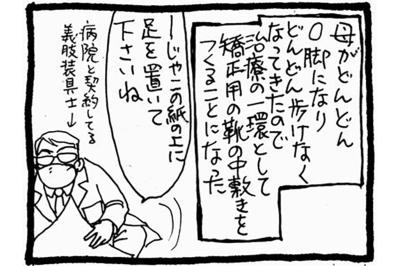 母がどんどん
O脚になり
どんどん歩けなく
なってきたので
治療の一環として
矯正用の靴の中敷きを
つくることになった
じゃこの紙の上に
足を置いて
下さいね
病院と契約してる
義肢装具士→